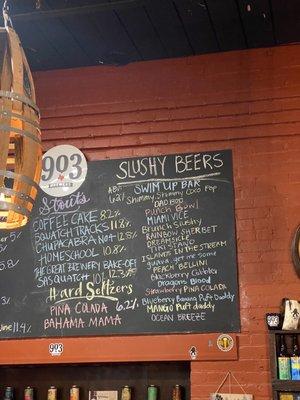 903
BREWERS
Stouts
COFFEE CAKE 8.2%
SASQUATCH TRACKS 11.8%
CHUPACABRA NOT 12.3%
HOMESCHOOL 10.8%
THE GREAT BREWERY BAKE-OFF
SASQUATCH 12.3%
Hard Seltzers
PINA COLADA
BAHAMA MAMA 6.2%
5.8%
11.4%
SLUSHY BEERS
ABV
6.2%
SWIM UP BAR
Shimmy Shimmy Coco Pop
DAD BOD
Punch Bowl
MIAMI VICE
Brunch Slushy
RAINBOW SHERBET
DREAMSICLE
TIKI STAND
ISLANDS IN THE STREAM
Guava, get me some
PEACH BELLINI
Blackberry Cobbler
Dragons Blood
Strawberry PINA COLADA
Blueberry Banana Puft Daddy
MANGO Puft daddy
OCEAN BREEZE
903